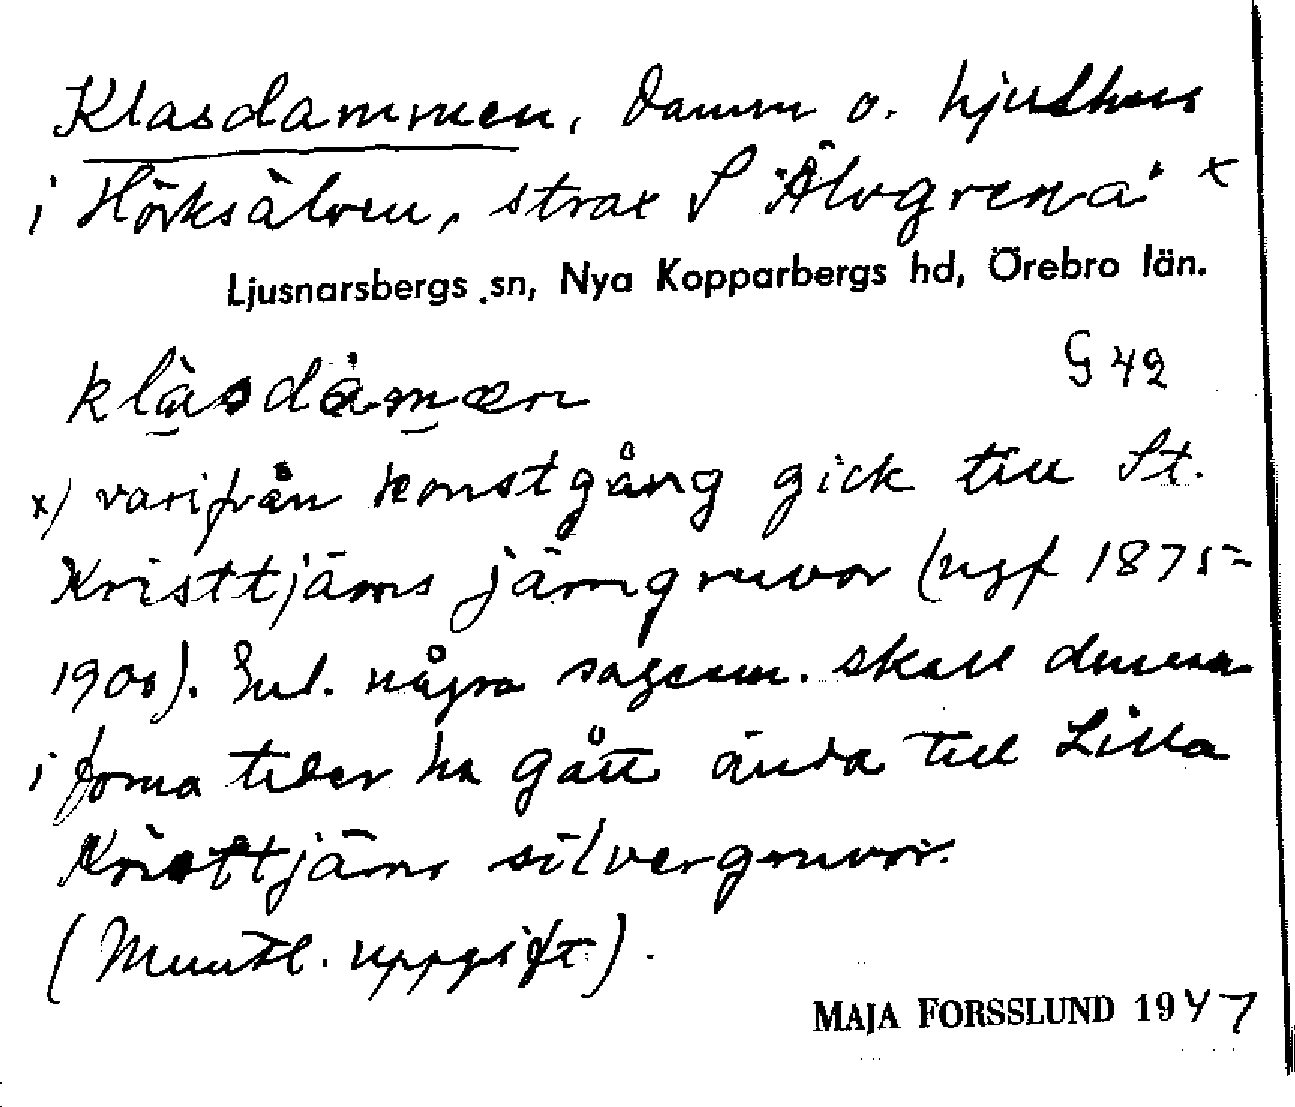 Klasdammen, Damm o. hjulhus
i Hörksälven, strax S "Älvgrena" x
Ljusnarsbergs sn, Nya Kopparbergs hd, Örebro län.
klàsdàmæn G 42
x) varifrån konstgång gick till St.
Kristtjärns järngruvor (ngf 1875-
1900). Enl. några sagesm. skall denna
i forna tider ha gått ända till Lilla
Kristtjärns silvergruvor.
(Muntl. uppgift).
MAJA FORSSLUND 1947